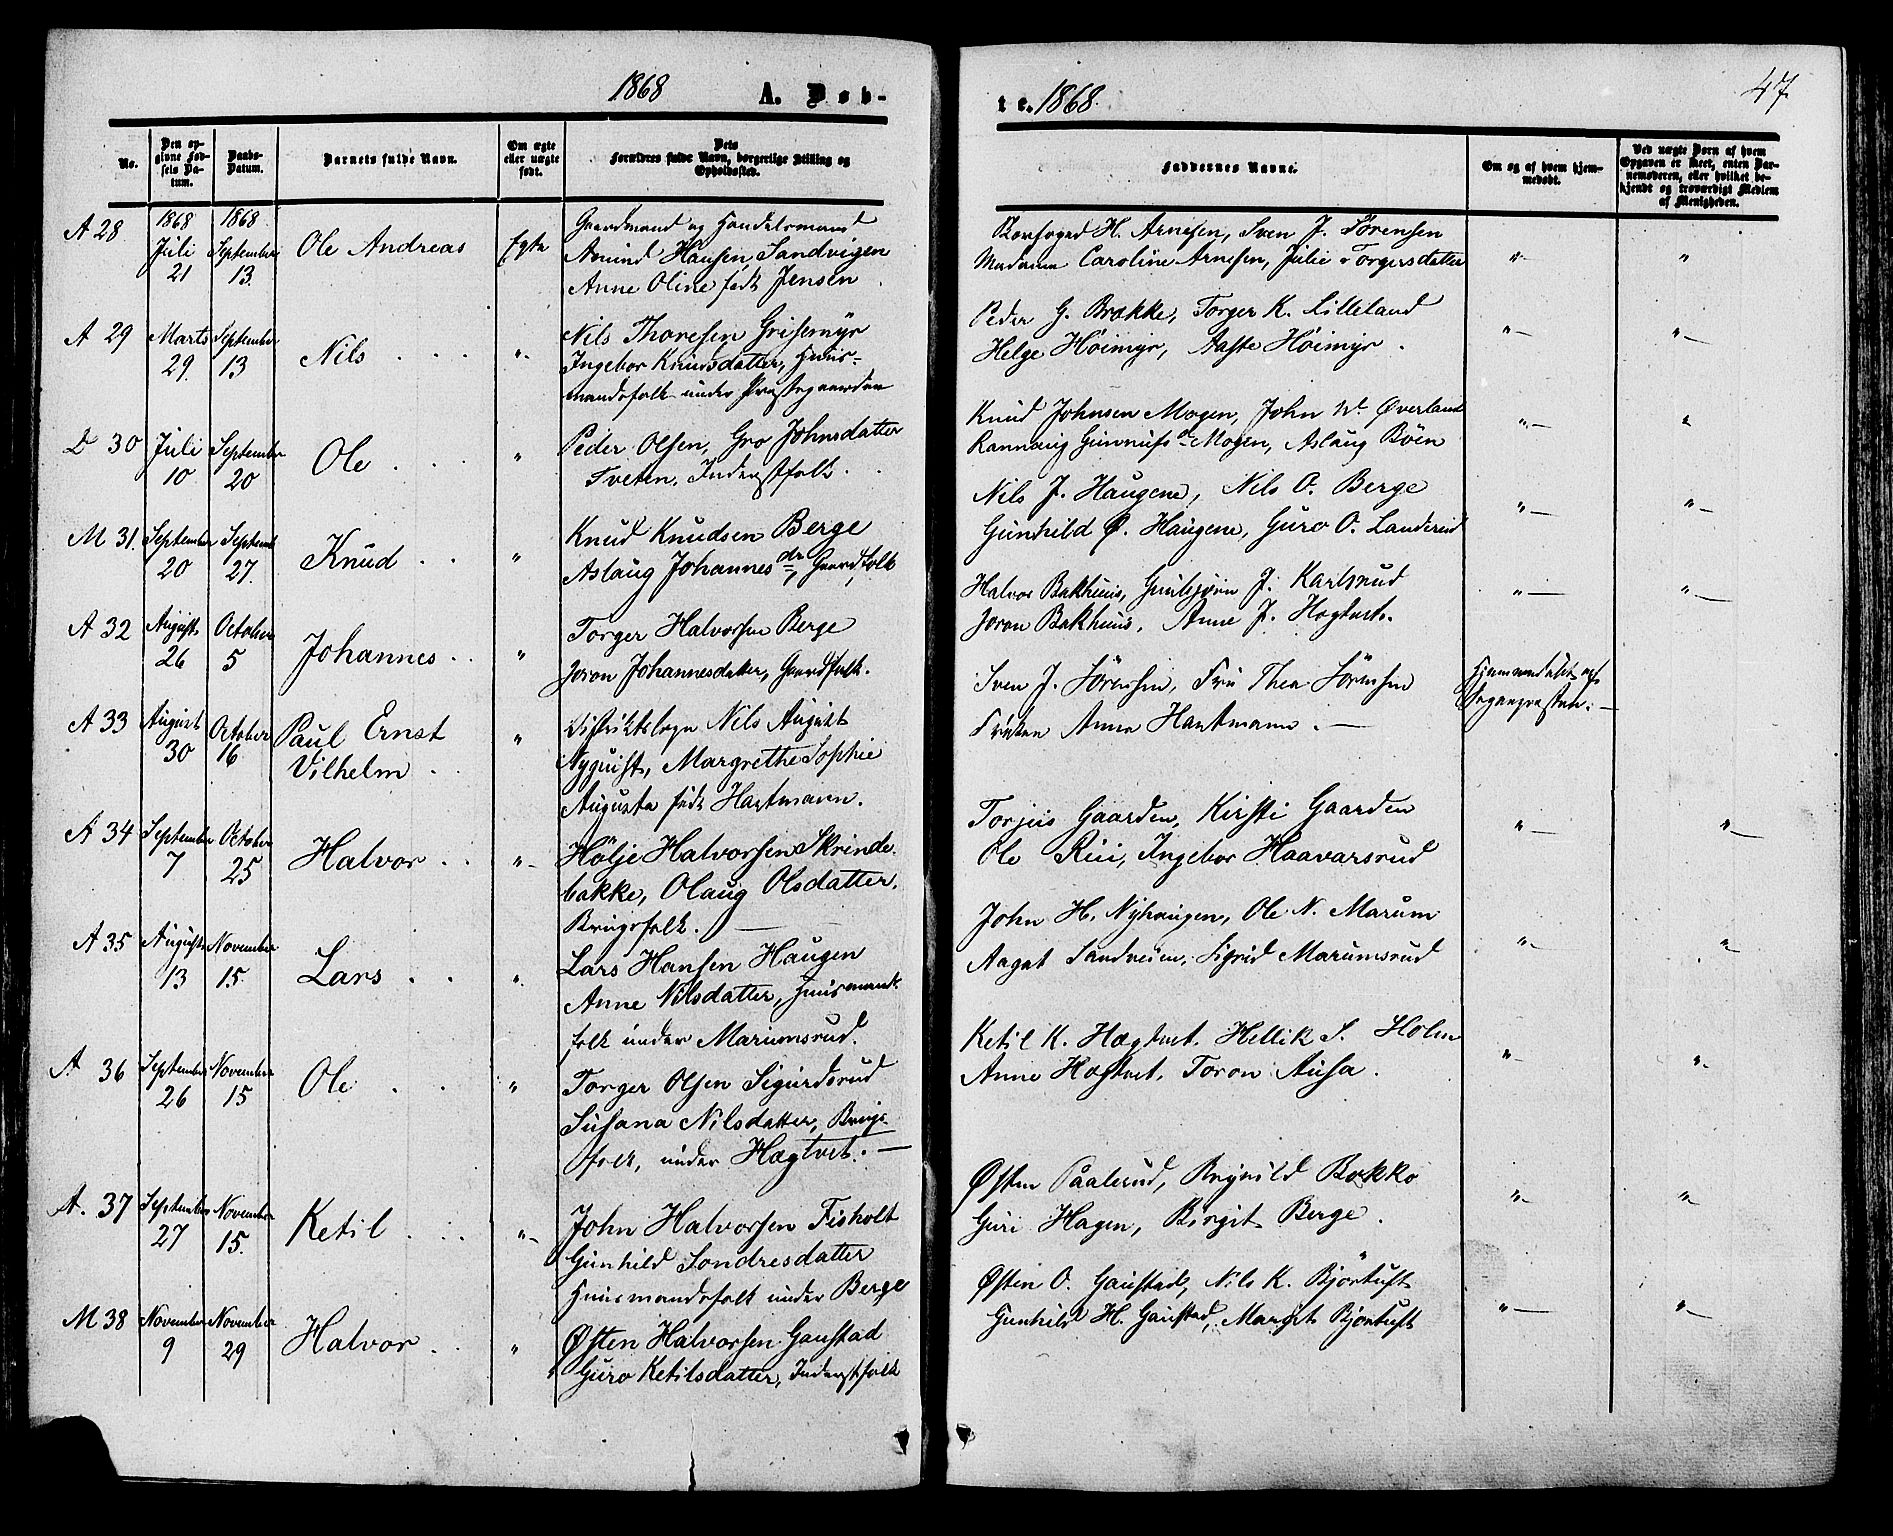 1868 A. Døb-
No.
Den op-
givne Fød-
sels Da-
tum.
Daabs-
Datum.
Barnets fulde Navn.
Om ægte
eller uægte
født.
Dets
Forældres fulde Navn, borgerlige Stilling og
Opholdssted.
A 28 1868 Juli 21 1868 September 13. Ole Andreas Egte
Gaardmand og Handelsmand
Amund Hansen Sandvigen
Anne Oline født Jensen
A 29 Marts 29. September 13 Nils "
Nils Thoresen Grisemyr
Ingebor Knudsdatter, Huus-
mandsfolk under Præstegaarden
D 30 Juli 10 September 20 Ole "
Peder Olsen, Gro Johnsdatter
Tveten, Inderstfolk.
M 31. September 20 Septemb. 27. Knud "
Knud Knudsen Berge
Aslaug Johannesdr, Gaardfolk
A 32 August 26 October 5 Johannes "
Torger Halvorsen Berge
Joron Johannesdatter, Gaardfolk.
A 33 August 30 October 16 Paul Ernst
Vilhelm "
Distriktslæge Nils August
Nyquist, Margrethe Sophie
Augusta født Hartmann.
A 34 September 7 October 25 Halvor "
Hölje Halvorsen Skrinde-
bakke, Olaug Olsdatter.
Brugsfolk. —
A 35 August 13 November 15. Lars "
Lars Hansen Haugen
Anne Nilsdatter, Huusmands
folk under Marumsrud.
A 36 September 26 November 15 Ole "
Torger Olsen Sigurdsrud
Susana Nilsdatter, Brugs-
folk, under Hægtvet. —
A. 37 September 27 November 15. Ketil "
John Halvorsen Fisholt
Gunhild Sondresdatter
Huusmandsfolk under Berge
M 38 November 9 November 29 Halvor "
Østen Halvorsen Gaustad
Guro Ketilsdatter, Inderstfolk
te. 1868. 47.
Faddernes Navne.
Om og af hvem hjem-
medøbt.
Ved uægte Børn af hvem
Opgaven er skeet, enten Bar-
nemoderen, eller hvilket be-
kjendt og troværdigt Medlem
af Menigheden.
H. Arnesen, Sven J. Sörensen
Madame Caroline Arnesen, Julie Torgersdatter " "
Peder G. Brække, Torger K. Lilleland
Helge Höimyr, Aaste Höimyr. " "
Knud Johnsen Mogen, John W. Øverland
Rannaug Gunnufsdr Mogen, Aslaug Böen " "
Nils J. Haugene, Nils O. Berge
Gunhild Ø. Haugene, Guro O. Landsrud " "
Halvor Bakhuus, Gunbjörn J. Karlsrud
Joron Bakhuus, Anne J. Hægtvet. " "
Sven J. Sörensen, Fru Thea Sörensen
Fröken Anna Hartmann. — Hjemmedøbt af
Sognepresten. —
Torjus Gaarden, Kirsti Gaarden
Ole Rui, Ingebor Haavarsrud " "
John H. Nyhaugen, Ole N. Marum
Aagat Sandveien, Sigrid Marumsrud " "
Ketil K. Hægtvet, Hellik S. Holm
Anne Hægtvet, Toron Ausa. " "
Østen Paalsrud, Bækko
Guri Hagen, Birgit Berge. " "
Østen O. Gaustad, Nils K. Bjórtuft
Gunhild H. Gaustad, Margit Bjórtuft " "